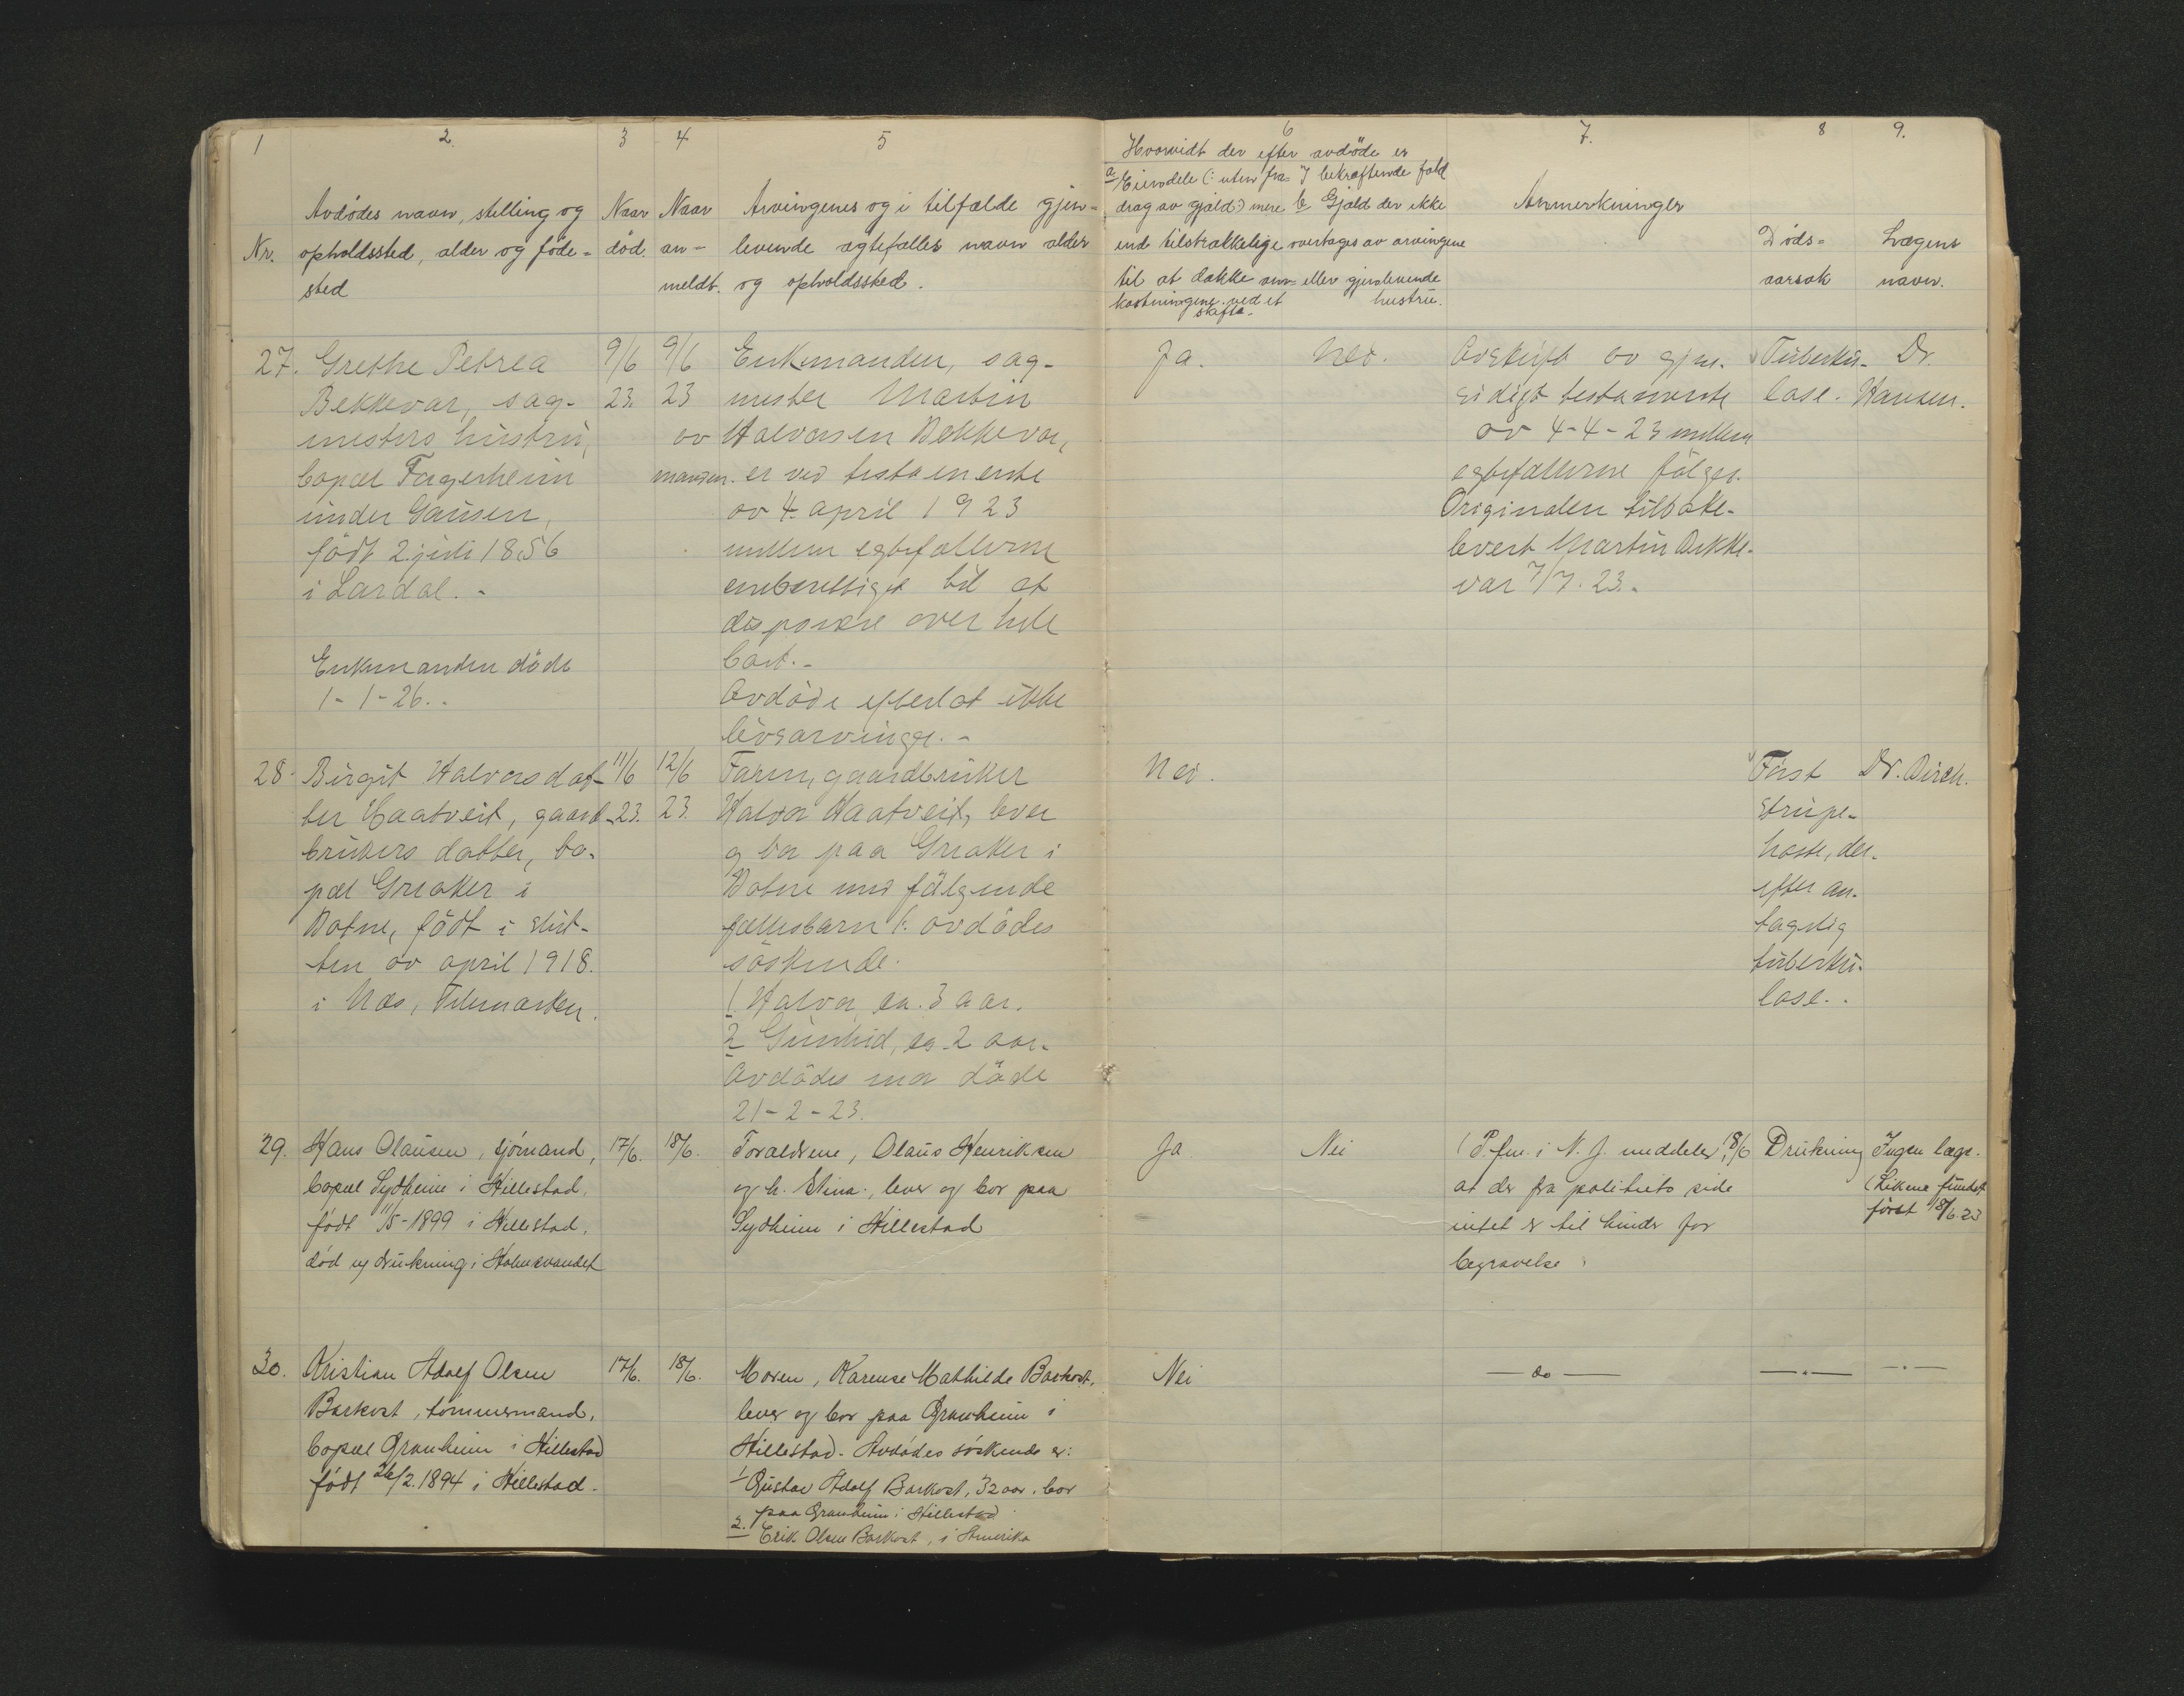 1
2.
3
4
5
6
7.
8
9.
Nr.
Avdødes navn, stilling og
opholdssted, alder og føde=
sted
Naar
død.
Naar
an-
meldt.
Arvingenes og i tilfælde gjen=
levende ægtefælles navn alder
og opholdssted.
Hvorvidt der efter avdøde er
a Eiendele (: uten fra=
drag av gjæld:) mere
end tilstrækkelige
til at dække om=
kostningene ved et
skifte.
I bekræftende fald
b Gjæld der ikke
overtages av arvingene
eller gjenlevende
hustru.
Anmerkninger
Døds=
aarsak
Lægens
navn.
27.
Grethe Petrea
Bekkevar, sag-
mesters hustru,
bopæl Fagerheim
under Gausen,
født 2. juli 1856
i Lardal. -
Enkemanden døde
1-1-26. -
9/6
23.
9/6
23
av
manden.
Enkemanden, sag-
mester Martin
Halvorsen Bekkevar,
er ved testamente
av 4. april 1923
mellem egtefællerne
enebrettiget til at
disponere over hele
boet. -
Avdøde efterlot ikke
livsarvinger. -
Ja.
Nei.
Avskrift av gjen-
sidigt testamente
av 4-4-23 mellem
egtefællerne følger.
Originalen tilbake-
levert Martin Bekke-
var 7/7. 23. -
Tuberku-
lose.
Dr.
Hansen.
28.
Birgit Halvorsdat-
ter Haatveit, gaard-
brukers datter, bo-
pæl Greaker i
Botne, født i slut-
ten av april 1918.
i Næs, Telemarken.
11/6
23.
12/6
23.
Faren, gaardbruker
Halvor Haatveit, lever
og bor paa Greaker i
Botne med følgende
fællesbarn (: avdødes
søskende.
1. Halvor, ca. 3 aar.
2 Gunhild, ca 2 aar.
Avdødes mor døde
21-2-23.
Nei.
Først
strupe-
hoste, der-
efter an-
tagelig
tuberku-
lose. .
Dr. Birch.
29.
Hans Olausen, sjømand,
bopæl Sydheim i Hillestad,
født 11/5-1899 i Hillestad,
død ved drukning i Holmsvandet
17/6.
18/6.
Forældrene, Olaus Henriksen
og h. Stina., lever og bor paa
Sydheim i Hillestad
Ja
Nei
(P.fm. i N. J. meddeler 18/6
at der fra politiets side
intet er til hinder for
begravelse.
Drukning
Ingen læge.
(Likene fundet
først 18/6.23
30.
Kristian Adolf Olsen
Barkost, tømmermand,
bopæl Granheim i Hillestad
født 26/2.1894 i Hillestad.
17/6.
18/6.
Moren, Karense Mathilde Barkost,
lever og bor paa Granheim i
Hillestad. Avdødes søskende er:
1 Gustav Adolf Barkost, 32 aar, bor
paa Granheim i Hillestad
2. Erik Olsen Barkost, i Amerika
Nei
— do —
— " —
— " —